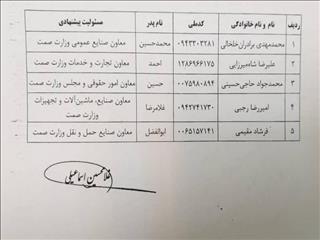 ردیف نام و نام خانوادگی کدملی نام پدر مسئولیت پیشنهادی
۱ محمدمهدی برادران‌خلخالی ۰۹۴۳۲۰۳۲۸۱ محمدحسین معاون صنایع عمومی وزارت صمت
۲ علیرضا شاه‌میرزایی ۱۲۸۶۹۶۶۱۷۵ احمد معاون تجارت و خدمات وزارت صمت
۳ محمدجواد حاجی‌حسینی ۰۰۷۵۹۸۰۸۹۴ حسین معاون امور حقوقی و مجلس وزارت صمت
۴ امیررضا رجبی ۰۹۴۲۷۴۱۷۳۰ غلامرضا معاون صنایع، ماشین‌آلات و تجهیزات
وزارت صمت
۵ فرشاد مقیمی ۰۰۶۵۱۵۷۱۴۱ ابوالفضل معاون صنایع حمل و نقل وزارت صمت
غلامحسین اسماعیلی